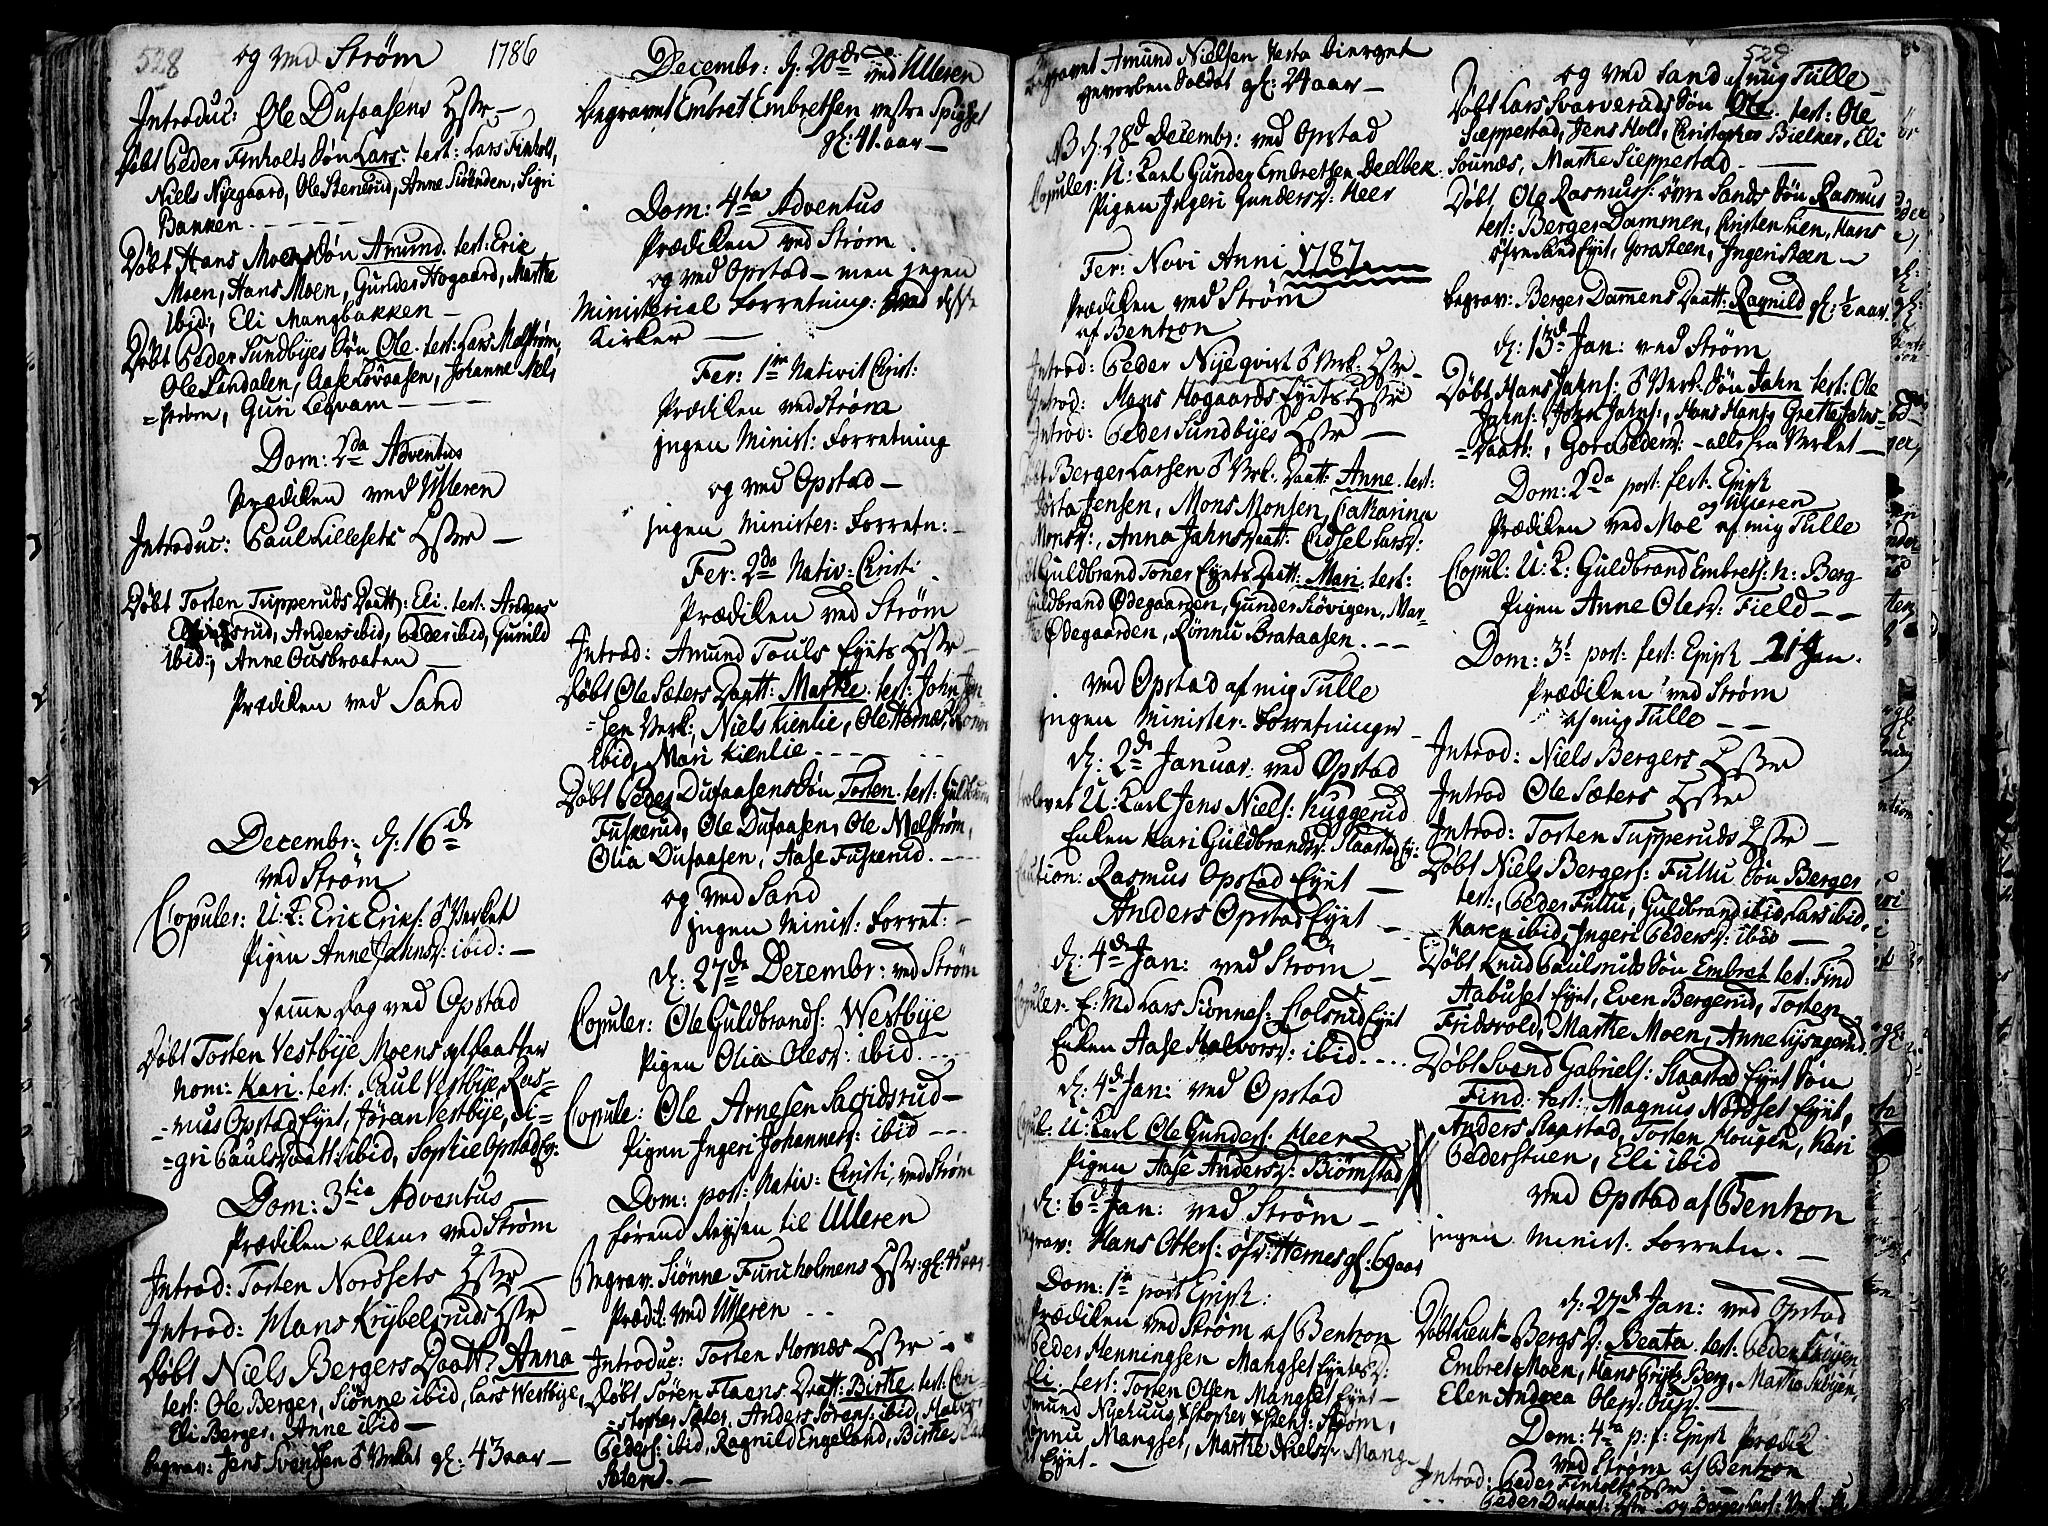 528
og ved Strøm 1786
Introduc: Ole Dusaasens Hstr —
Døbt Peder Finholts Søn Lars. test: Lars Finholt,
Niels Nyegaard, Ole Stenerud, Anne Skiønden, Sigri
Bakken.
Døbt Hans Moens Søn Amund. test: Eric
Moen, Hans Moen, Gunder Hogaard, Marthe
ibid:, Eli Mangbakken —
Døbt Peder Sundbyes Søn Ole. test: Lars Melstrøm,
Ole Lindalen, Aase Løvaasen, Johanne Mel,
=strøm, Guri Leqvam
Dom: 2da Adventus
Prædiken ved Ulleren
Introduc: Paul Lillesets Hstr —
Døbt Torsten Tupperuds Daatt: Eli. test: Anders
Anders ibid, Peder ibid, Gunild
ibid:, Anne Ousbraaten —
Prædiken ved Sand
Decembr: d: 16de
ved Strøm
Copuler: U: K: Eric Erics: å Verket
Pigen Anne Jahnsd: ibid: —
samme Dag ved Opstad
Døbt Torsten Vestbye Moens Daatter
nom: Kari. test: Paul Vestbye, Ras=
=mus Opstad Eyet, Jøran Vestbye, Si=
=gri Pauls Daatt: ibid, Sophie Opstad Ey:
Dom: 3tia Adventus —
Prædiken allene ved Strøm
Introd: Torsten Nordsets Hstr —
Introd: Hans Krybelsruds Hstr —
Døbt Niels Bergers Daatt: Anna
test: Ole Berger, Siønne ibid, Lars Westbye,
Eli Berger, Anne ibid —
begrav: Jens Svendsen å Verket gl: 43 aar —
Decembr: d: 20de ved Ulleren
begravet Embret Embretsen vestre Spigset
gl: 41. aar —
Dom: 4ta Adventus
Prædiken ved Strøm
og ved Opstad — men ingen
Ministerial Forretning: ved disse
Kirker —
Fer: 1ma Nativit Christ:
Prædiken ved Strøm
ingen Minist: Forretning
og ved Opstad —
ingen Minister: Forretn: —
Fer: 2da Nativ: Christi
Prædiken ved Strøm
Introd: Amund Touls Eyets Hstr —
Døbt Ole Sæters Daatt: Marthe. test: John Jen=
=sen Verk:, Niels Kienlie, Ole Hernæs,
ibid, Mari Kienlie
Døbt Peder Dusaasens Søn Torsten. test:
Fuskerud, Ole Dusaasen, Ole Melstrøm,
Olia Dusaasen, Aase Fuskerud.
og ved Sand
ingen Minist: Forret: —
d: 27de Decembr: ved Strøm
Copuler: Ole Guldbrands: Westbye
Pigen Olia Olesd: ibid.
Copule: Ole Arnesen Sacsidsrud —
Pigen Ingeri Johannesd: ibid
Dom: post: Nativ: Christi, ved Strøm
førend Reysen til Ulleren
Begrav: Siønne Furuholmens Hstr: gl: 45 aar
Prædik: ved Ulleren
Introduc: Torsten Hornæs Hstr —
Døbt Søren Flaans Daatt: Birthe. test: Cri=
=stopher Sæter, Anders Sørens: ibid,
Peders: ibid, Ragnild Engeland, Birthe
Sætern. —
begravet Amund Nielsen
gevorben Soldat gl: 24 aar —
NB d: 28de Decembr: ved Opstad
Copuler: U: Karl Gunder Embretsen Deelbek
Pigen Ingeri Gundersd: Heer
Fer: Novi Anni 1787.
Prædiken ved Strøm
af Bentzon
Introd: Peder Nyeqvist å Verk: Hstr —
Introd: Hans Hogaards Eyets Hstr
Introd: Peder Sundbyes Hstr —
Døbt Berger Larsen å Vrk: Daatt: Anne. test:
Jensen, Mons Monsen, Catharina
Monsd:, Anna Jahns Daatt: Cidsel Larsd:
Døbt Guldbrand Toner Eyets Daatt: Mari. test:
Guldbrand Ødegaarden, Gunder Skøvigen, Mar=
Ødegaarden, Rønnu Brataasen.
ved Opstad af mig Tulle
ingen Minister: Forretninger —
d: 2de Januar: ved Opstad
trolovet U: Karl Jens Niels: Kuggerud
Enken Kari Guldbrandsd: Slaastad Ey:
Caution: Rasmus Opstad Eyet —
Anders Opstad Eyet —
d: 4de Jan: ved Strøm —
Copuler: E: Md Lars Siønnes: Colsrud Eyet
Enken Aase Halvorsd: ibid
d: 4de Jan: ved Opstad
Copul: U: Karl Ole Gunders: Heer
Pigen Aase Andersd: Biørnstad
d: 6te Jan: ved Strøm —
begrav: Hans Otters: øfr: Hernes gl: 69 aar
Dom: 1ma post Epiph:
Prædiken ved Strøm af Bentzon
Peder Henningsen Mangset Eyets D:
Eli. test: Torsten Olsen Mangset Eyet —
Amund Nyehuus, Strøm,
Rønnu Mangset, Marthe Nielsd: Mang=
Eyet. —
529
og ved Sand af mig Tulle —
Døbt Lars Svarveruds Søn Ole. test: Ole
Sæppestad, Jens Holt, Christopher Bielker, Eli
Sounæs, Marthe Sieppestad. —
Døbt Ole Rasmuss: øvre Sands Søn Rasmus
test: Berger Dammen, Christen Lien, Hans
øfre Sand Eyet, Gora Steen, Ingeri Steen —
begrav: Berger Damens Daatt: Ragnild gl: ½ aar.
d: 13de Jan: ved Strøm
Døbt Hans Jahns: å Verk. Søn Jahn test: Ole
Jahns: John Jahns:, Hans Hans:, Grethe Jahns=
=Daatt:, Gora Pedersd: — alle fra Verket —
Dom: 2da post: fest: Epiph
og Ulleren
Prædiken ved Moe af mig Tulle
Copul: U: K: Guldbrand Embrets: N: Berg
Pigen Anne Olesd: Field —
Dom: 3t post: fest: Epiph 21 Jan.
Prædiken ved Strøm
af mig Tulle —
Introd: Niels Bergers Hstr
Introd Ole Sæters Hstr
Introd: Torsten Tupperuds Hstr —
Døbt Niels Bergers: Fulltu Søn Berger
test:, Peder Fulltu, Guldbrand ibid, Lars ibid,
Karen ibid, Ingeri Pedersd: ibid —
Døbt Knud Paulsruds Søn Embret test: Find
Aabuset Eyet, Even Bergerud, Torsten
Fridsvold, Marthe Moen, Anne Lysagerud.
Døbt Svend Gabriels: Slaastad Eyet Søn
Find. test:, Magnus Nordset Eyet,
Anders Slaastad, Torsten Hougen, Kari
Pederstuen, Eli ibid —
ved Opstad af Bentzon
ingen Minist: Forretn. —
d: 27de Jan: ved Opstad
Døbt Lieut: Bergs D: Beata. test: Peder Skøyen,
Embret Moen, Hans Berg, Marthe Skøyen,
Elen Andrea Olesd: —
Dom: 4ta p: f: Epiph Prædik
ved Strøm af Bentzon
Introd: Peder Finholts Hstr
Peder Dusaas: Hstr og Berger Lars: Verk: H: